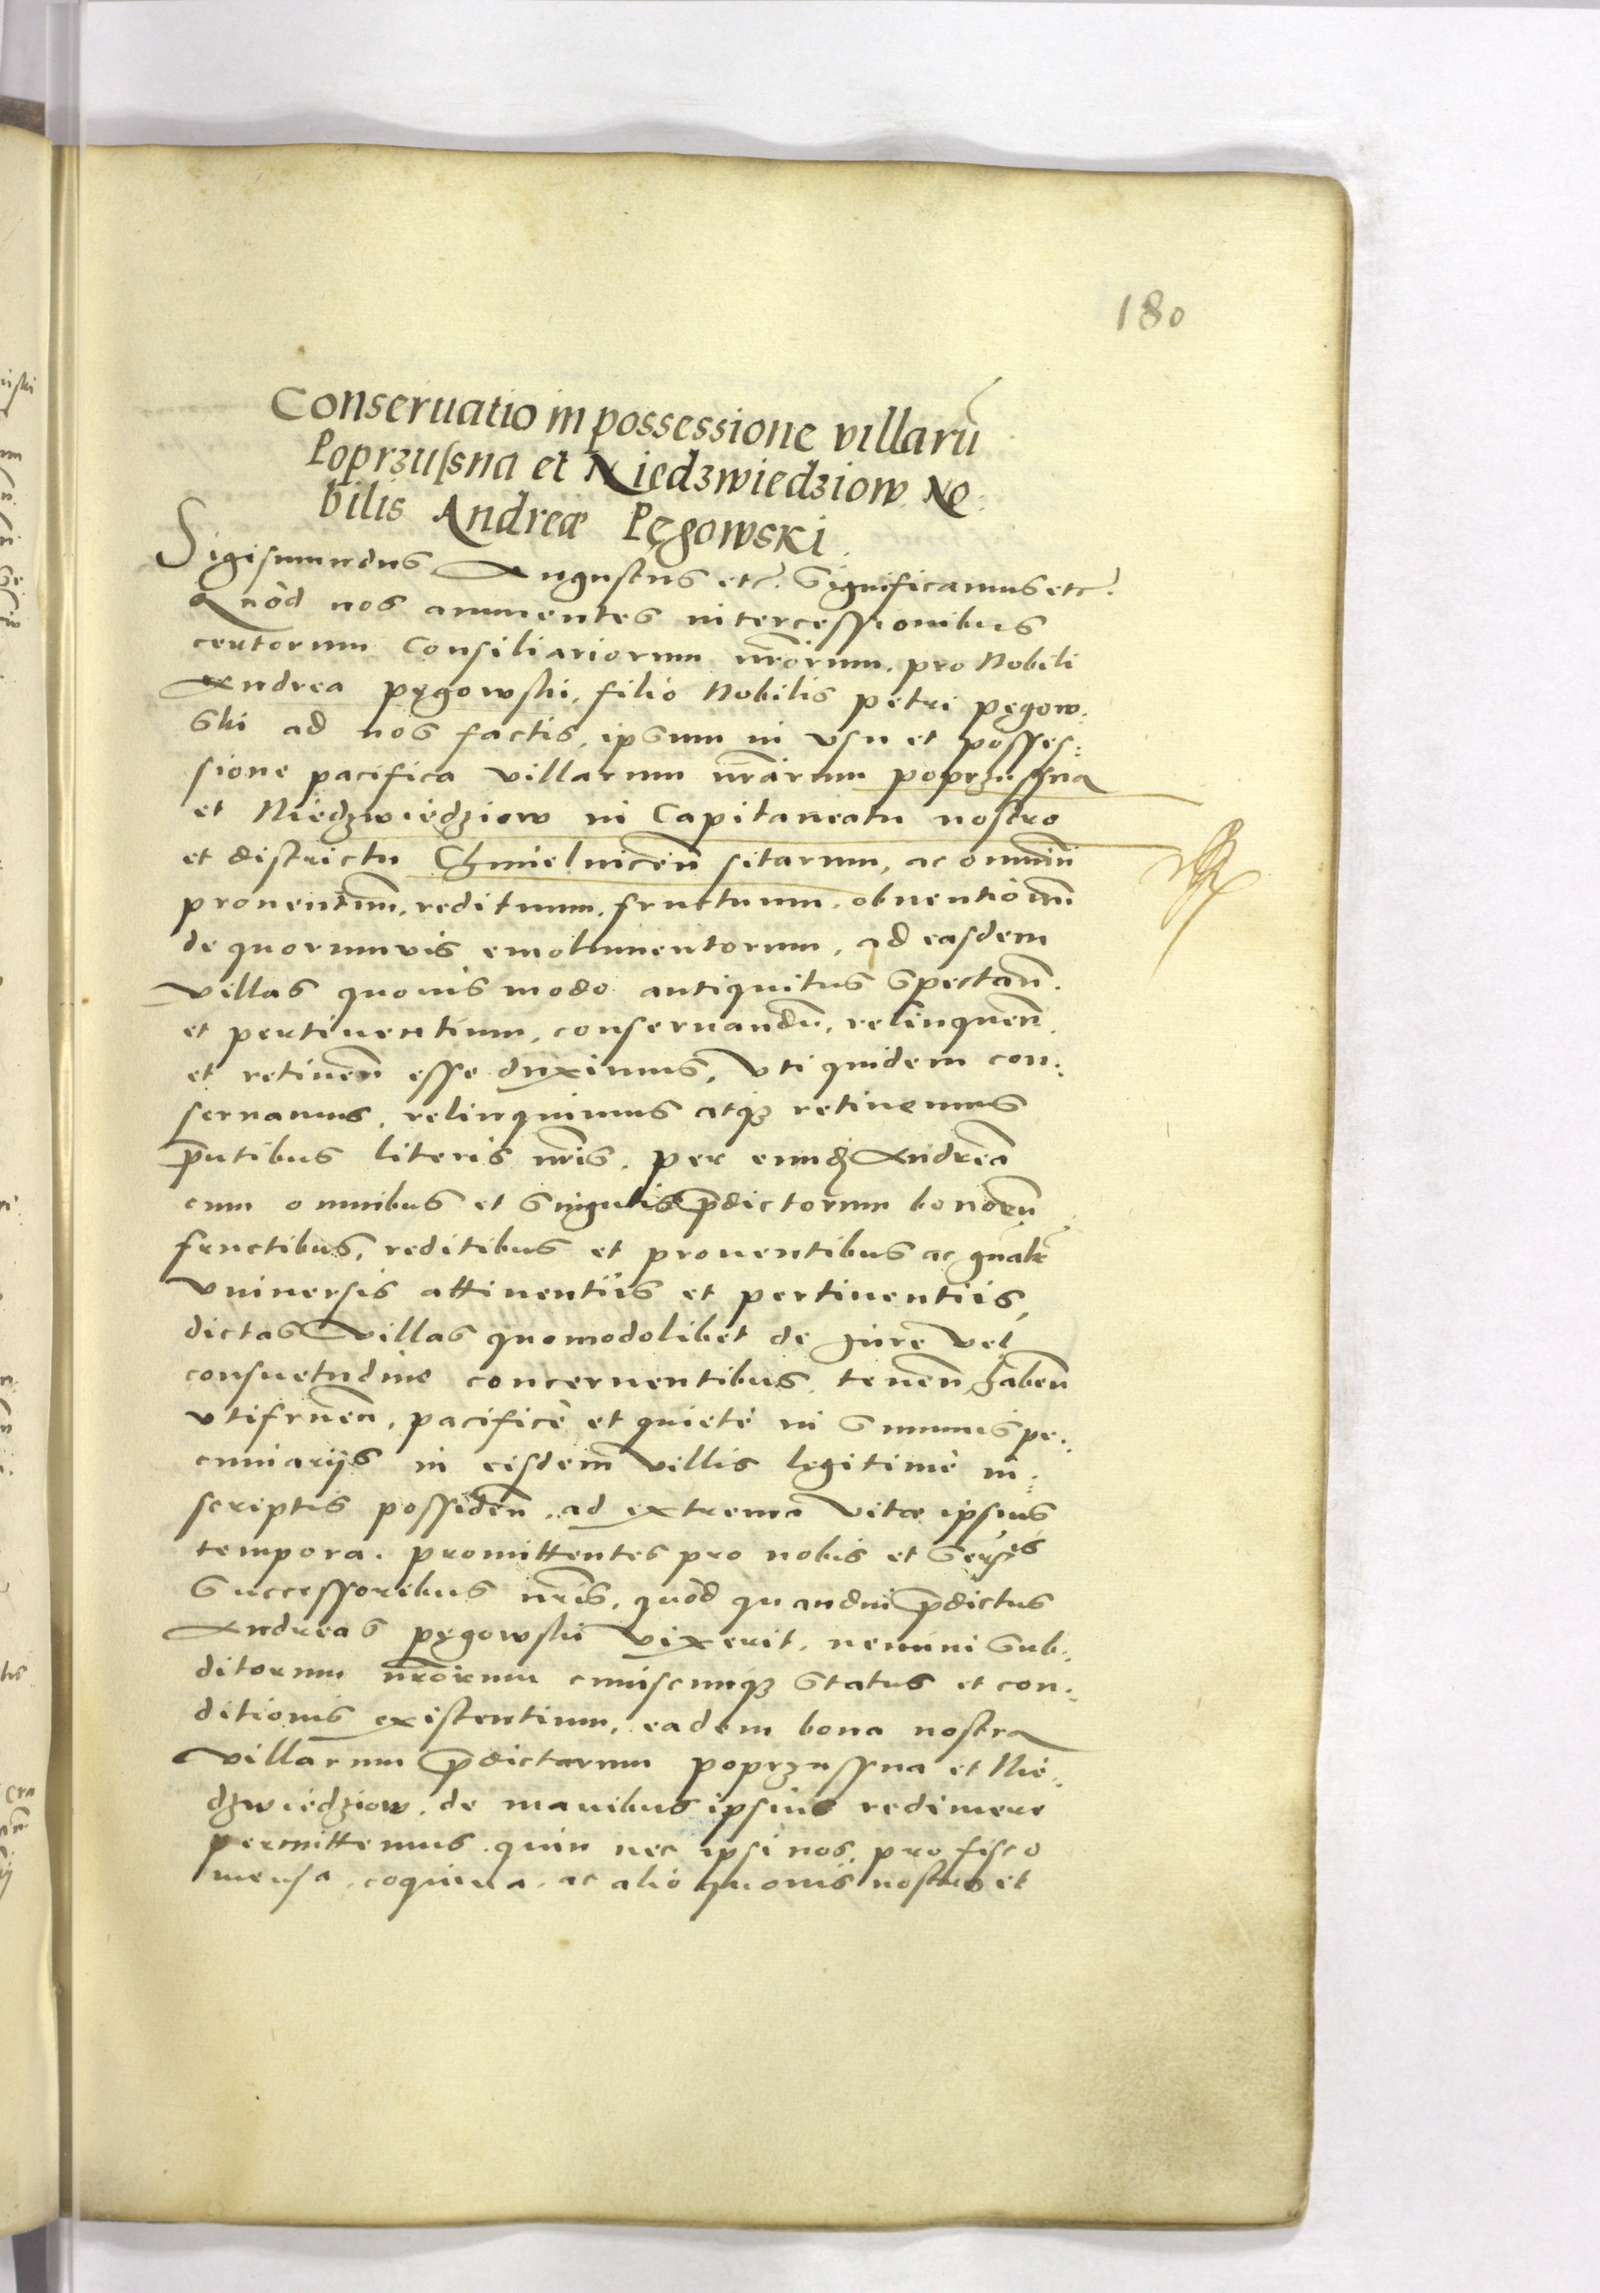 180
Conseruatio in possessione villarū
Poprzuſsna et Niedzwiedziow No:
bilis Andreæ Pęgowski.
Sigismundus Augustus etc. Significamus etc.
Quod nos annuentes intercessionibus
certorum Consiliariorum nr̄orum, pro Nobili
Andrea pęgowski, filio Nobilis petri pęgow:
ski ad nos factis, ipsum in vsu et posses:
sione pacifica villarum nr̄arum poprzussna
et Niedzwiedziow in Capitaneatu nostro
et districtu Chmielnicen̄ sitarum, ac omniū
prouentuum, redituum, fructuum, obuentionū
de quorumuis emolumentorum, ad easdem
villas quouis modo antiquitus spectan̄.
et pertinentium, conseruandū, relinquen̄.
et retinen̄ esse duximus, vti quidem con:
seruamus, relinquimus atqȝ retinemus
p̄ntibus literis nr̄is, per eundē Andreā
cum omnibus et singulis p̄dictorum bonorū
fructibus, reditibus et prouentibus ac gn̄alr̄
vniuersis attinentiis et pertinentiis,
dictas villas quomodolibet de iure vel
consuetudine concernentibus, tenen̄, haben̄
vtifruen̄, pacificè et quietè in summis pe:
cuniariis in eisdem villis legitimè in:
scriptis possiden̄, ad extrema vitæ ipsius
tempora. promittentes pro nobis et Serm̄is
Successoribus nr̄is, quòd quandiu p̄dictus
Andreas pęgowski vixerit, nemini sub:
ditorum nr̄orum cuiuscunqȝ status et con:
ditionis existentium, eadem bona nostra
villarum p̄dictarum poprzussna et Nie:
dzwiedziow, de manibus ipsius redimere
permittemus, quin nec ipsi nos, pro fisco
mensa, coquina, ac alio quouis nostro et